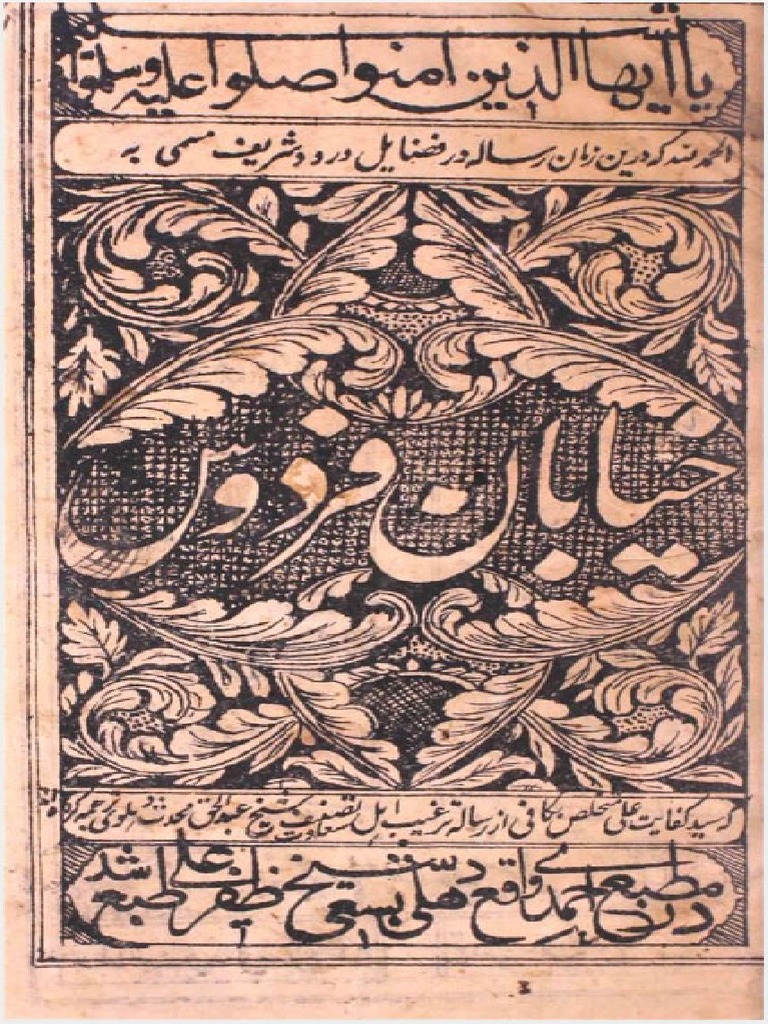 یا ایها الذین امنوا صلوا علیه وسلموا تسلیما
الحمد لله که درین زمان رساله در فضایل درود شریف مسمی به
خیابان فردوس
که سید کفایت علی متخلص بکافی از رساله ترغیب اهل سعادت تصنیف شیخ عبدالحق محدث دهلوی ترجمه کرد
در مطبع احمدی واقع دهلی بسعی شیخ ظفر علی طبع شد